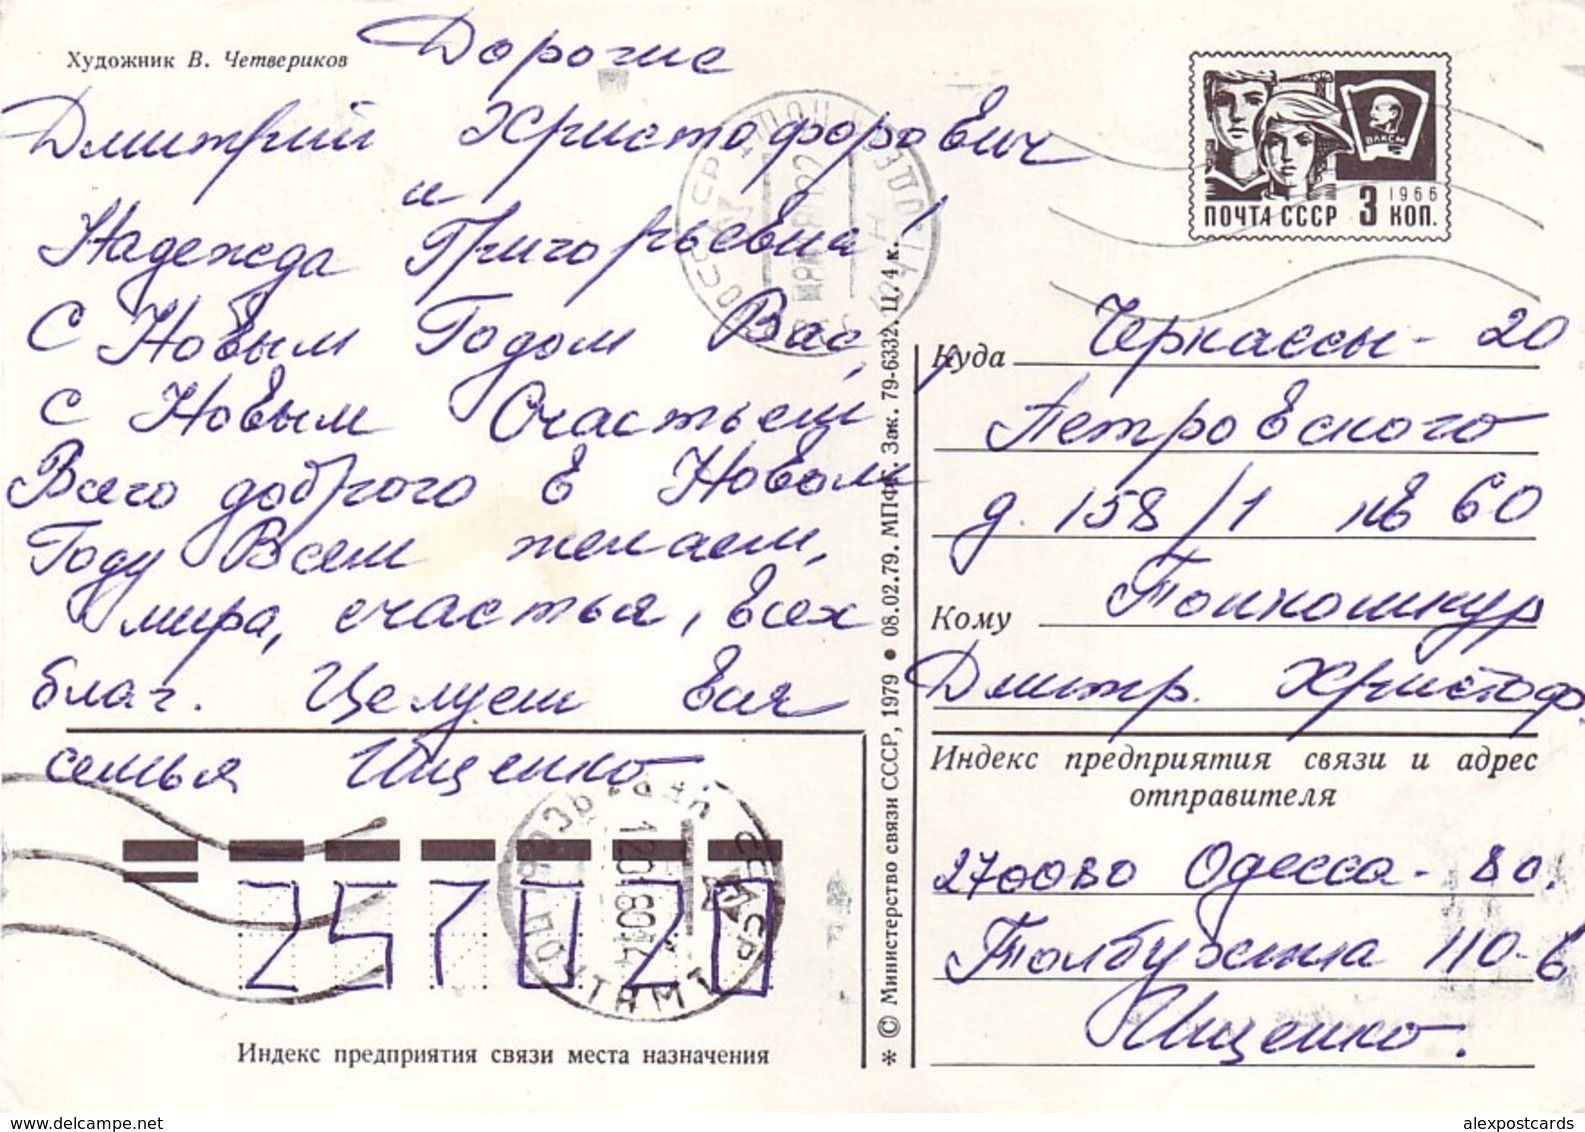 Художник В. Четвериков
Дорогие
Дмитрий Христофорович
и
Надежда Григорьевна!
С Новым Годом Вас,
с Новым Счастьем
Всего доброго в Новом
Году Всем желаем,
мира, счастья, всех
благ. Целуем вся
семья Ищенко.
257020
Индекс предприятия связи места назначения
* © Министерство связи СССР, 1979 ● 08.02.79. МПФГ. Зак. 79-6332. Ц. 4 к.
ВЛКСМ
1966
ПОЧТА СССР 3 КОП.
Куда Черкассы - 20
Петровского
д. 158/1 кв 60
Кому
Дмитр. Христоф
Индекс предприятия связи и адрес
отправителя
270080 Одесса - 80.
Толбухина 110-в
Ищенко.
alexpostcards